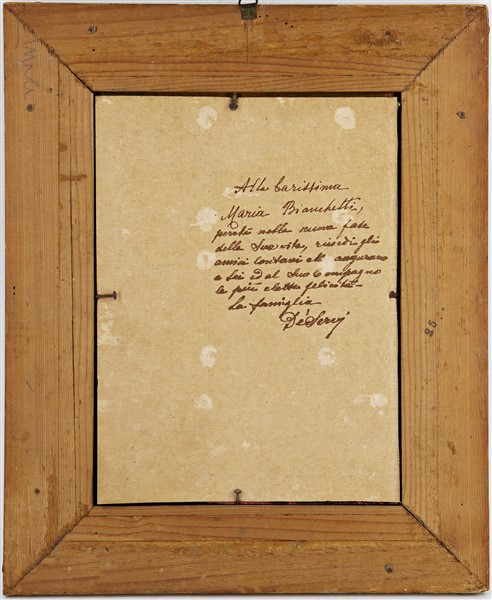 Alla Carissima
Maria Bianchetti,
perchè nella nuova fase
della Sua vita, ricordi gli
amici lontani che augurano
a Lei ed al Suo Compagno
le più elette felicità -
La famiglia
De' Servi
25